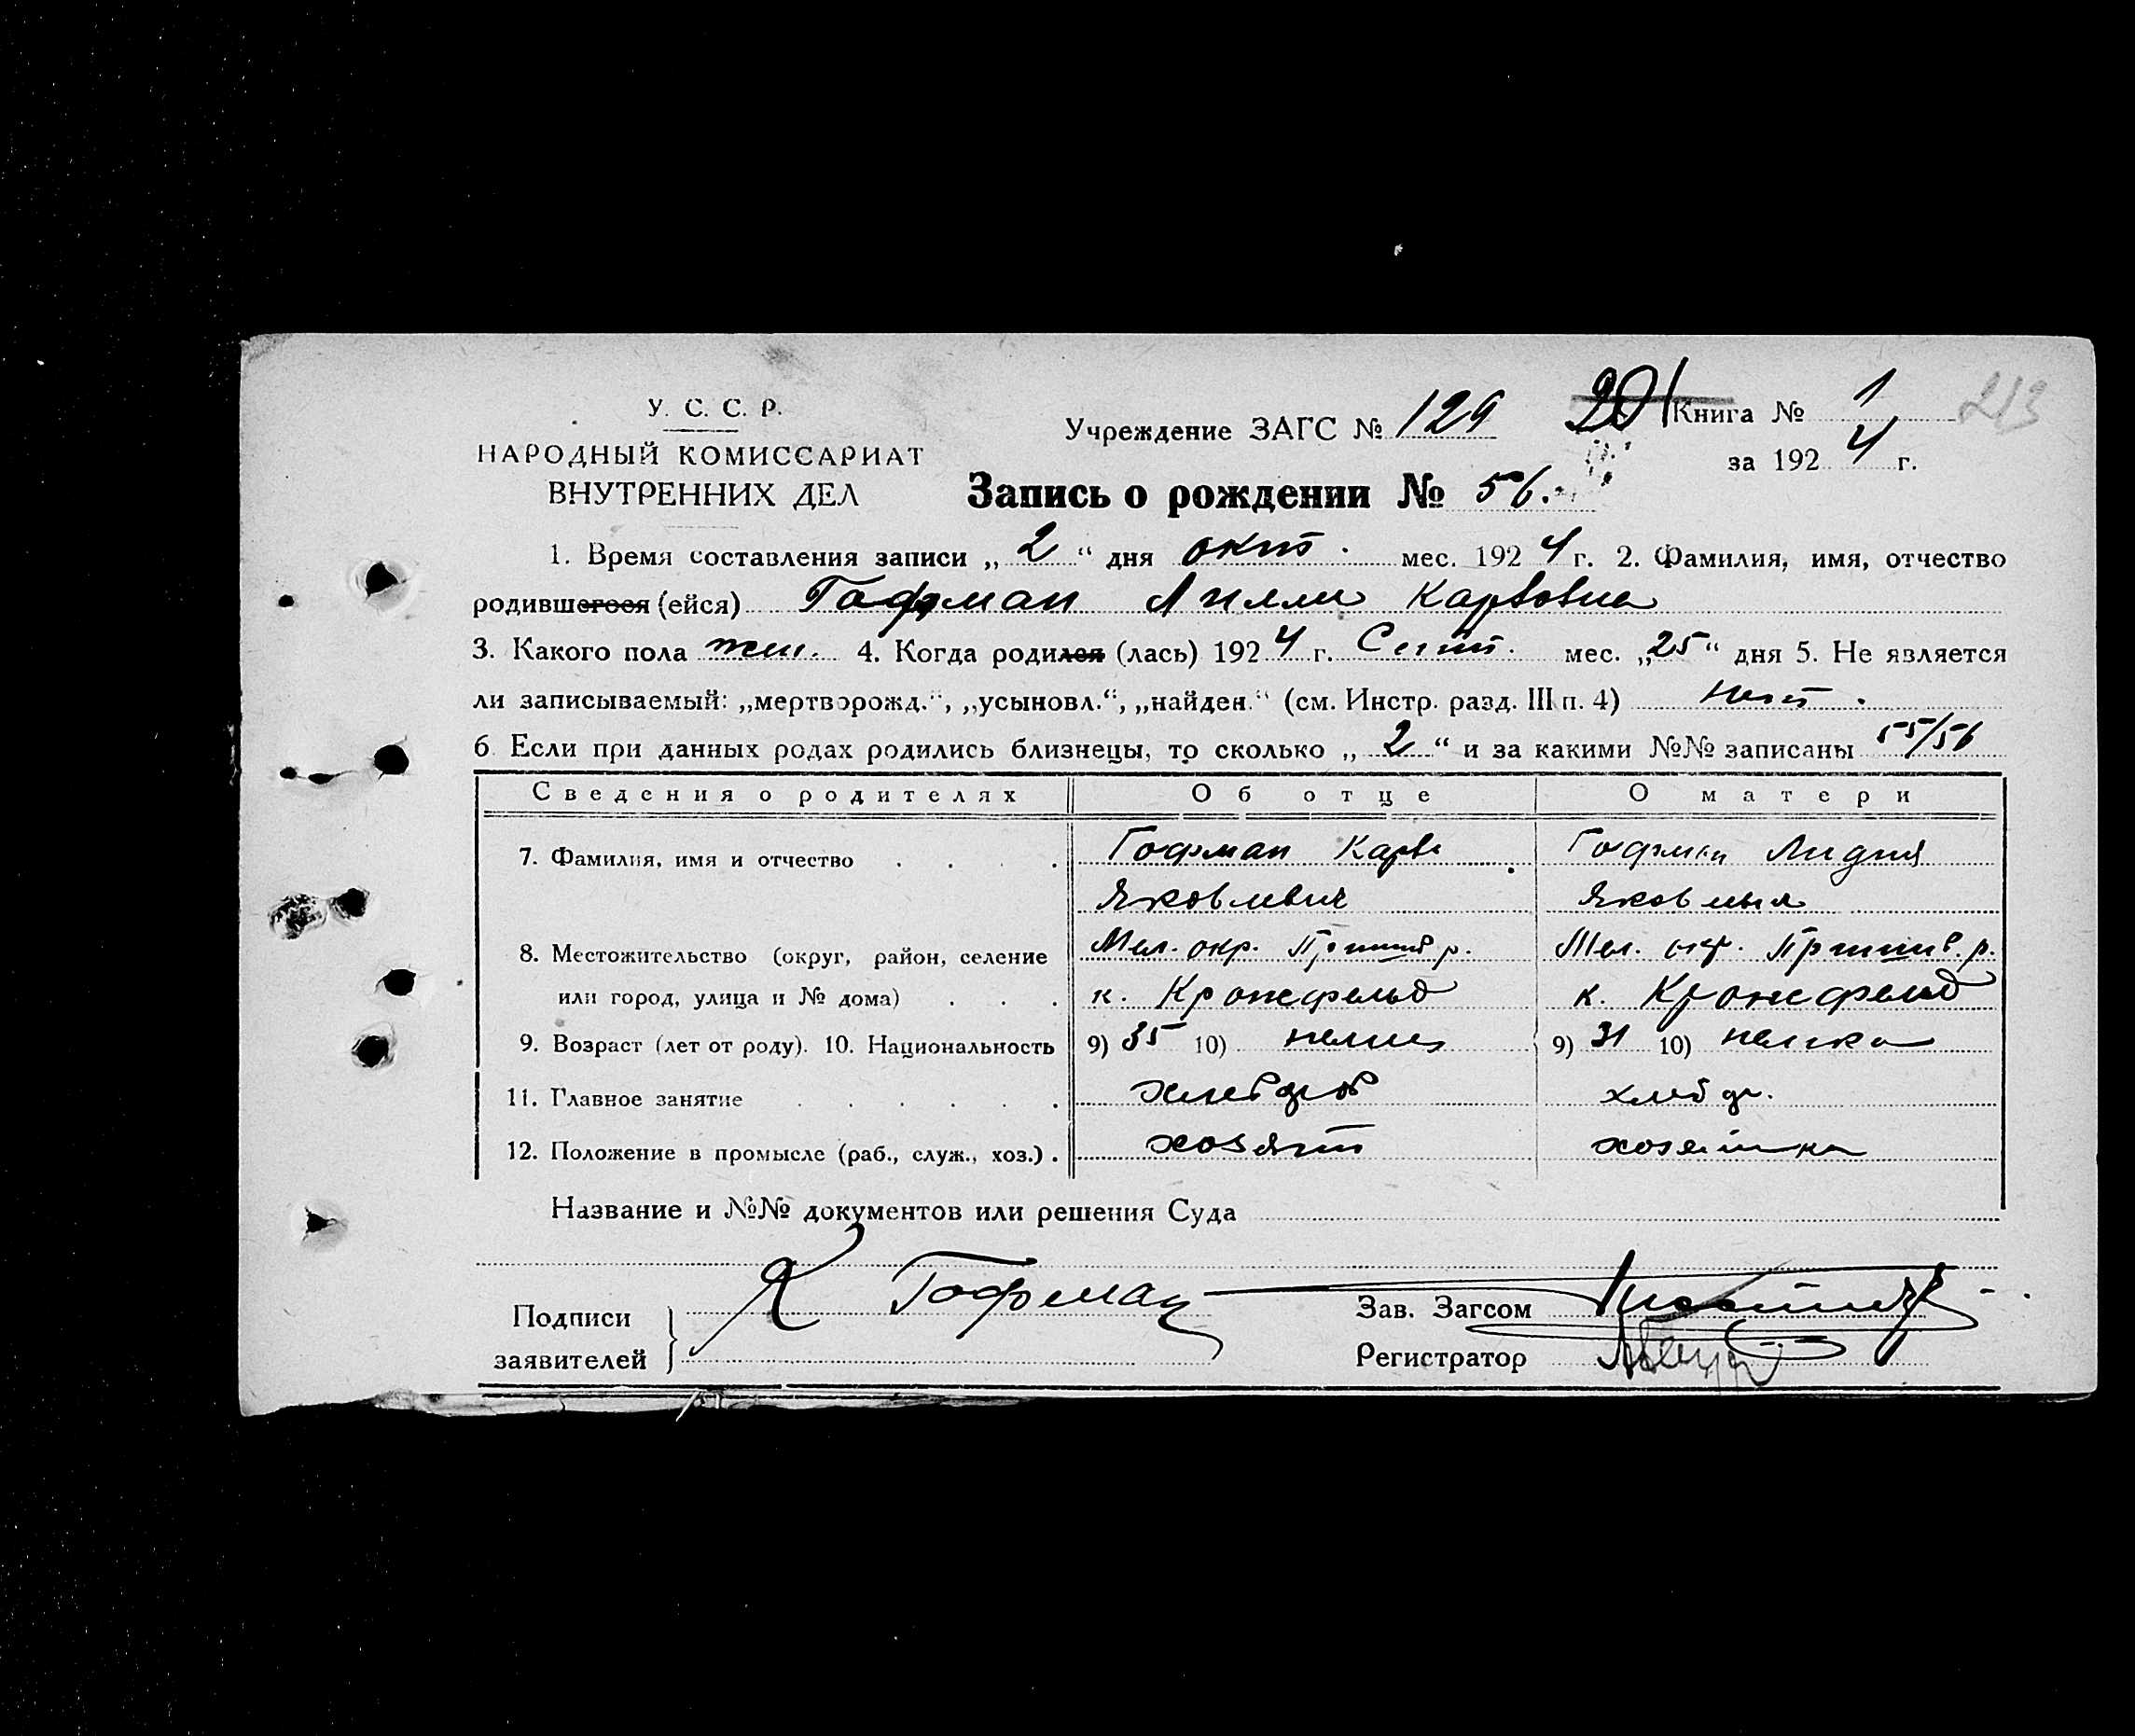 У. С. С. Р.
НАРОДНЫЙ КОМИССАРИАТ
ВНУТРЕННИХ ДЕЛ
Учреждение ЗАГС № 129
201 Книга № 1
213
за 1924 г.
Запись о рождении № 56.
1. Время составления записи „2“ дня окт. мес. 1924 г. 2. Фамилия, имя, отчество
родившегося (ейся) Гофман Лилли Карловна
3. Какого пола жен. 4. Когда родился (лась) 1924 г. Сент. мес. „25“ дня 5. Не является
ли записываемый: „мертворожд.“, „усыновл.“, „найден.“ (см. Инстр. разд. III п. 4) нет.
6 Если при данных родах родились близнецы, то сколько „2“ и за какими №№ записаны 55/56
Сведения о родителях Об отце О матери
7. Фамилия, имя и отчество . . . . Гофман Карл Гофман Лидия
Яковлевич Яковлевна
8. Местожительство (округ, район, селение Мел. окр. Пришиб р. Мел. окр. Пришиб. р.
или город, улица и № дома) . . . к. Кронсфельд к. Кронсфельд
9. Возраст (лет от роду). 10. Национальность 9) 35 10) немец 9) 31 10) немка
11. Главное занятие . . . . . . хлебороб хлебор.
12. Положение в промысле (раб., служ., хоз.) . хозяин хозяйка
Название и №№ документов или решения Суда
Подписи
заявителей
Я Гофман
Зав. Загсом
Регистратор